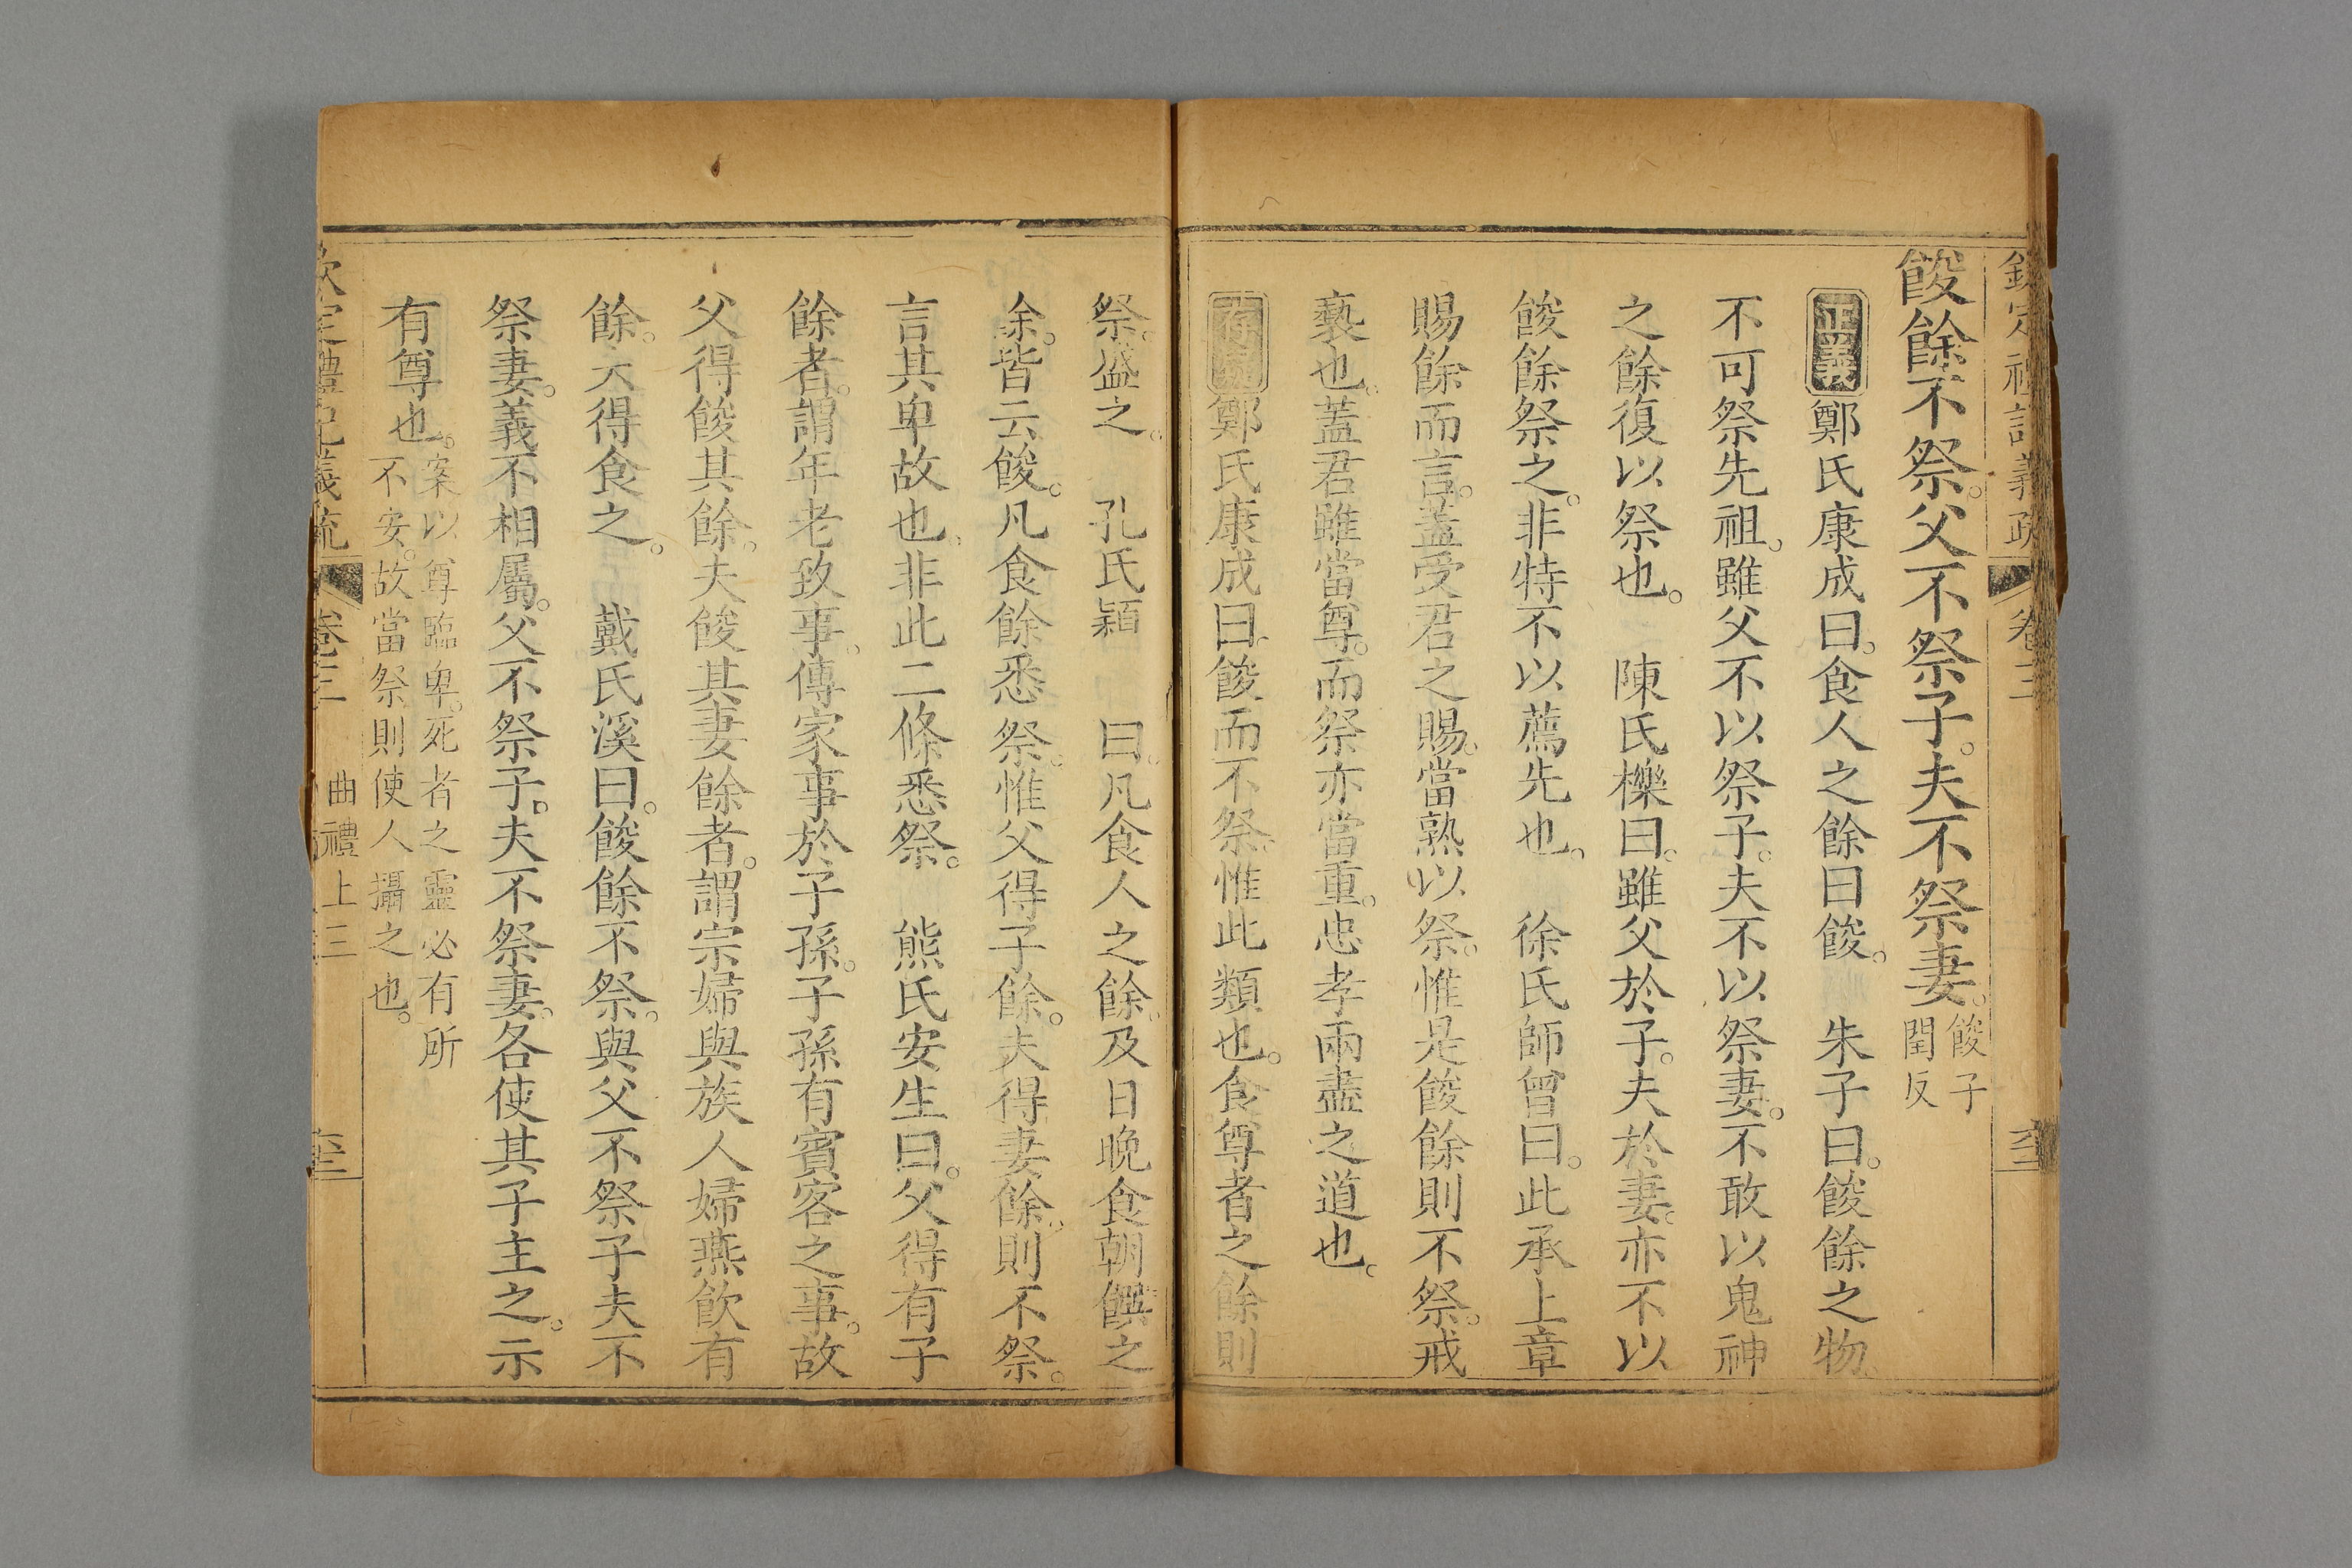 欽定禮記義疏 卷三
餕餘不祭。父不祭子。夫不祭妻。餕子
閏反
正義鄭氏康成曰。食人之餘曰餕。 朱子曰。餕餘之物。
不可祭先祖。雖父不以祭子。夫不以祭妻。不敢以鬼神
之餘復以祭也。 陳氏櫟曰。雖父於子。夫於妻。亦不以
餕餘祭之。非特不以薦先也。 徐氏師曾曰。此承上章
賜餘而言。蓋受君之賜。當熟以祭。惟是餕餘則不祭。戒
褻也。蓋君雖當尊。而祭亦當重。忠孝兩盡之道也。
存疑鄭氏康成曰。餕而不祭。惟此類也。食尊者之餘則
祭。盛之。 孔氏穎 曰。凡食人之餘。及日晚食朝饌之
餘。皆云餕。凡食餘悉祭。惟父得子餘。夫得妻餘。則不祭。
言其卑故也。非此二條悉祭。 熊氏安生曰。父得有子
餘者。謂年老致事。傳家事於子孫。子孫有賓客之事。故
父得餕其餘。夫餕其妻餘者。謂宗婦與族人婦燕飲有
餘。夫得食之。 戴氏溪曰。餕餘不祭。與父不祭子夫不
祭妻。義不相屬。父不祭子。夫不祭妻。各使其子主之。示
有尊也。案以尊臨卑。死者之靈必有所
不安。故當祭則使人攝之也。
欽定禮記義疏 卷三 曲禮上三